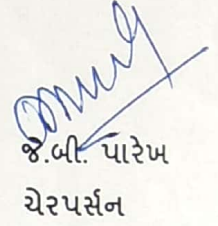 જે.બી. પારેખ
ચેરપર્સન